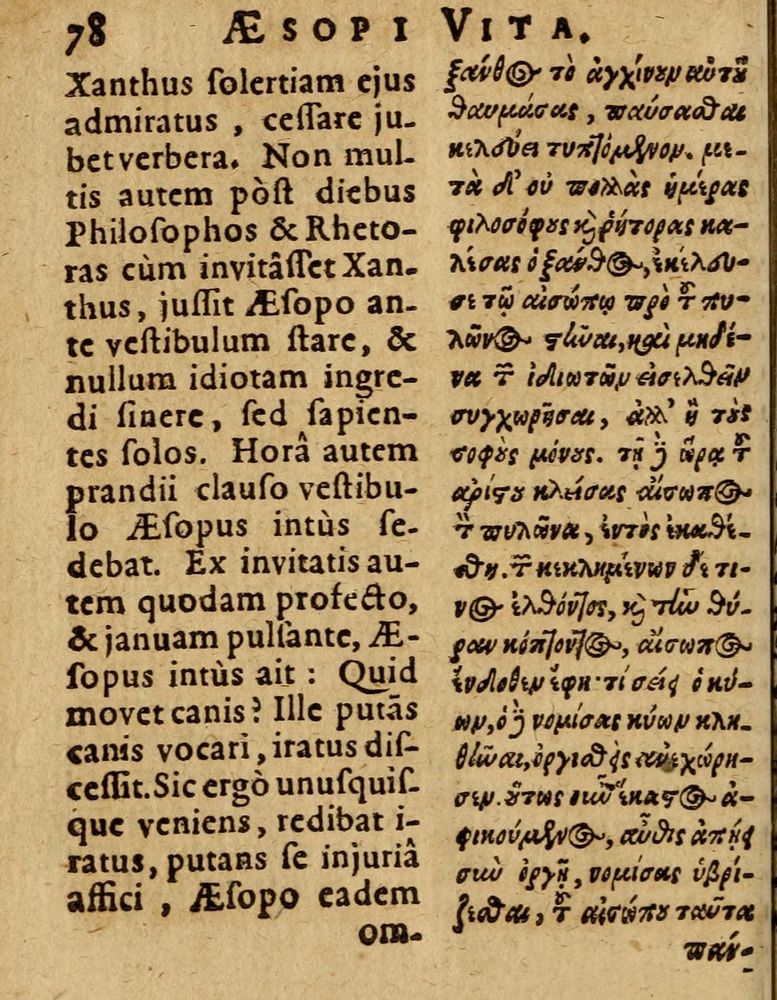 78 ÆSOPI VITA.
Xanthus ſolertiam ejus
admiratus , ceſſare ju-
bet verbera. Non mul-
tis autem pòſt diebus
Philoſophos & Rheto-
ras cùm invitâſſet Xan-
thus, juſſit Æſopo an-
te veſtibulum ſtare, &
nullum idiotam ingre-
di ſinere, ſed ſapien-
tes ſolos. Horâ autem
prandii clauſo veſtibu-
lo Æſopus intùs ſe-
debat. Ex invitatis au-
tem quodam profecto,
& januam pulſante, Æ-
ſopus intùs ait : Quid
movet canis? Ille putãs
canis vocari, iratus diſ-
ceſſit. Sic ergò unuſquiſ-
que veniens, redibat i-
ratus, putans ſe injuriâ
affici , Æſopo eadem
om-
ξάνθος τὸ ἀγχίνουν αὐτοῦ
θαυμάσας, παύσασθαι
κελεύει τυπτόμενον. με-
τὰ δ' οὐ πολλὰς ἡμέρας
φιλοσόφους καὶ ῥήτορας κα-
λέσας ὁ ξάνθος, ἐκέλευ-
σε τῷ αἰσώπῳ πρὸ τοῦ πυ-
λῶνος στῆναι, καὶ μηδέ-
να τῶν ἰδιωτῶν εἰσελθεῖν
συγχωρῆσαι, ἀλλ' ἢ τοὺς
σοφοὺς μόνους. τῇ δὲ ὥρᾳ τοῦ
ἀρίστου κλείσας αἴσωπος
τὸν πυλῶνα, ἐντὸς ἐκαθέ-
σθη. τῶν κεκλημένων δέ τι-
νος ἐλθόντος, καὶ τὴν θύ-
ραν κόπτοντος, αἴσωπος
ἔνδοθεν ἔφη· τί σείει ὁ κύ-
ων, ὁ δὲ νομίσας κύων κλη-
θῆναι, ὀργισθεὶς ἀνεχώρη-
σεν. οὕτως οὖν ἕκαστος ἀ-
φικούμενος, αὖθις ἀπῄει
σὺν ὀργῇ, νομίσας ὑβρί-
ζεσθαι, τοῦ αἰσώπου ταῦτα
πάν-